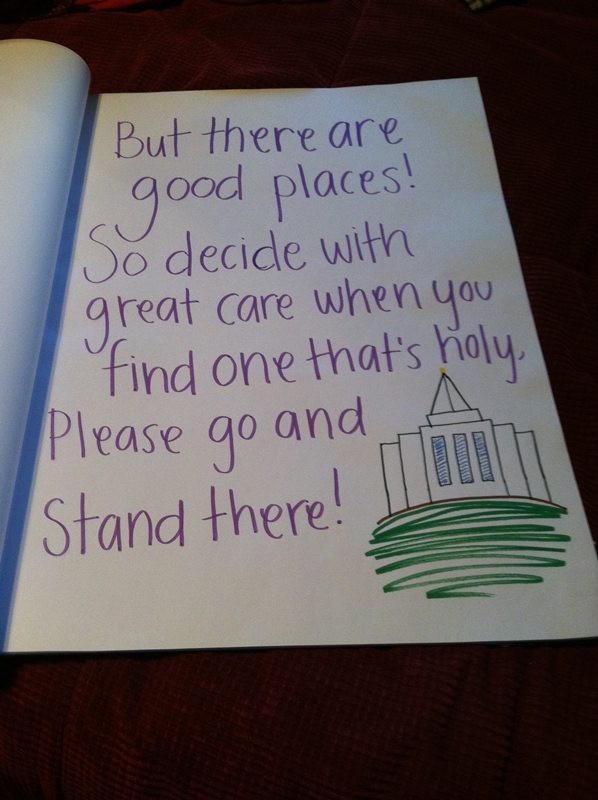 But there are
good places!
So decide with
great care when you
find one that's holy,
Please go and
Stand there!